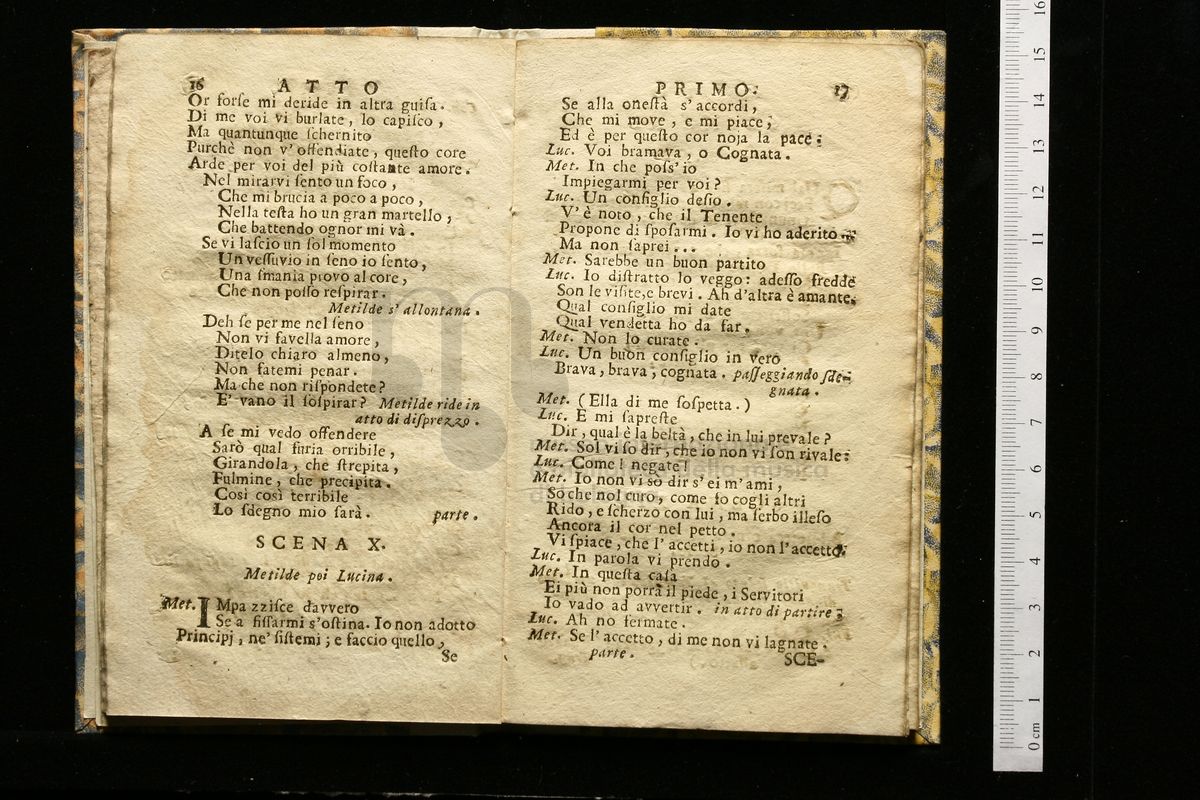 16 ATTO
Or forſe mi deride in altra guiſa.
Di me voi vi burlate, lo capiſco,
Ma quantunque ſchernito
Purchè non v'offendiate, queſto core
Arde per voi del più coſtante amore.
Nel mirarvi ſento un foco,
Che mi brucia a poco a poco,
Nella teſta ho un gran martello;
Che battendo ognor mi và.
Se vi laſcio un ſol momento
Un veſſuvio in ſeno io ſento,
Una ſmania provo al core,
Che non poſſo reſpirar.
Metilde s'allontana.
Deh ſe per me nel ſeno
Non vi favella amore,
Ditelo chiaro almeno,
Non fatemi penar.
Ma che non riſpondete?
E' vano il ſoſpirar? Metilde ride in
atto di diſprezzo.
A ſe mi vedo offendere
Sarò qual furia orribile,
Girandola, che ſtrepita,
Fulmine, che precipita.
Così così terribile
Lo ſdegno mio ſarà. parte.
SCENA X.
Metilde poi Lucina.
Met. IMpa zziſce davvero
Se a fiſſarmi s'oſtina. Io non adotto
Principj, ne' ſiſtemi; e faccio quello,
Se
PRIMO. 17
Se alla oneſtà s'accordi,
Che mi move, e mi piace;
Ed è per queſto cor noja la pace:
Luc. Voi bramava, o Cognata.
Met. In che poſs'io
Impiegarmi per voi?
Luc. Un conſiglio deſio.
V'è noto, che il Tenente
Propone di ſpoſarmi. Io vi ho aderito
Ma non ſaprei...
Met. Sarebbe un buon partito
Luc. Io diſtratto lo veggo: adeſſo fredde
Son le viſite, e brevi. Ah d'altra è amante.
Qual conſiglio mi date
Qual vendetta ho da far.
Met. Non lo curate.
Luc. Un buon conſiglio in vero
Brava, brava, cognata. paſſeggiando ſde-
gnata.
Met. (Ella di me ſoſpetta.)
Luc. E mi ſapreſte
Dir, qual è la beltà, che in lui prevale?
Met. Sol vi ſo dir, che io non vi ſon rivale:
Luc. Come! negate!
Met. Io non vi sò dir s'ei m'ami,
Sò che nol curo, come fo cogli altri
Rido, e ſcherzo con lui, ma ſerbo illeſo
Ancora il cor nel petto.
Vi ſpiace, che l'accetti, io non l'accetto.
Luc. In parola vi prendo.
Met. In queſta caſa
Ei più non porrà il piede, i Servitori
Io vado ad avvertir. in atto di partire;
Luc. Ah no fermate.
Met. Se l'accetto, di me non vi lagnate.
parte. SCE-
0 cm 1 2 3 4 5 6 7 8 9 10 11 12 13 14 15 16